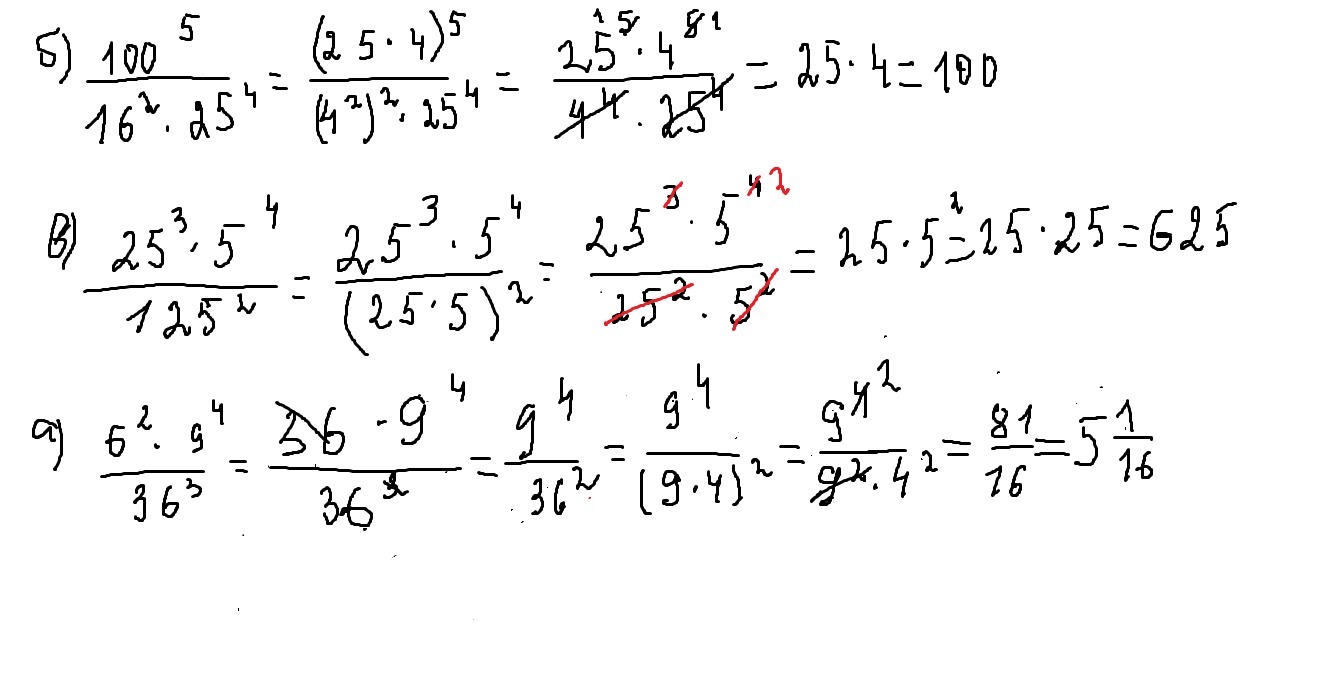 б) 100^5 / (16^2 · 25^4) = (25 · 4)^5 / ((4^2)^2 · 25^4) = 25^5 1 · 4^5 1 / (4^4 · 25^4) = 25 · 4 = 100
в) 25^3 · 5^4 / 125^2 = 25^3 · 5^4 / (25 · 5)^2 = 25^3 · 5^4 2 / (25^2 · 5^2) = 25 · 5^2 = 25 · 25 = 625
а) 6^2 · 9^4 / 36^3 = 36 · 9^4 / 36^3 2 = 9^4 / 36^2 = 9^4 / (9 · 4)^2 = 9^4 2 / (9^2 · 4^2) = 81 / 16 = 5 1/16